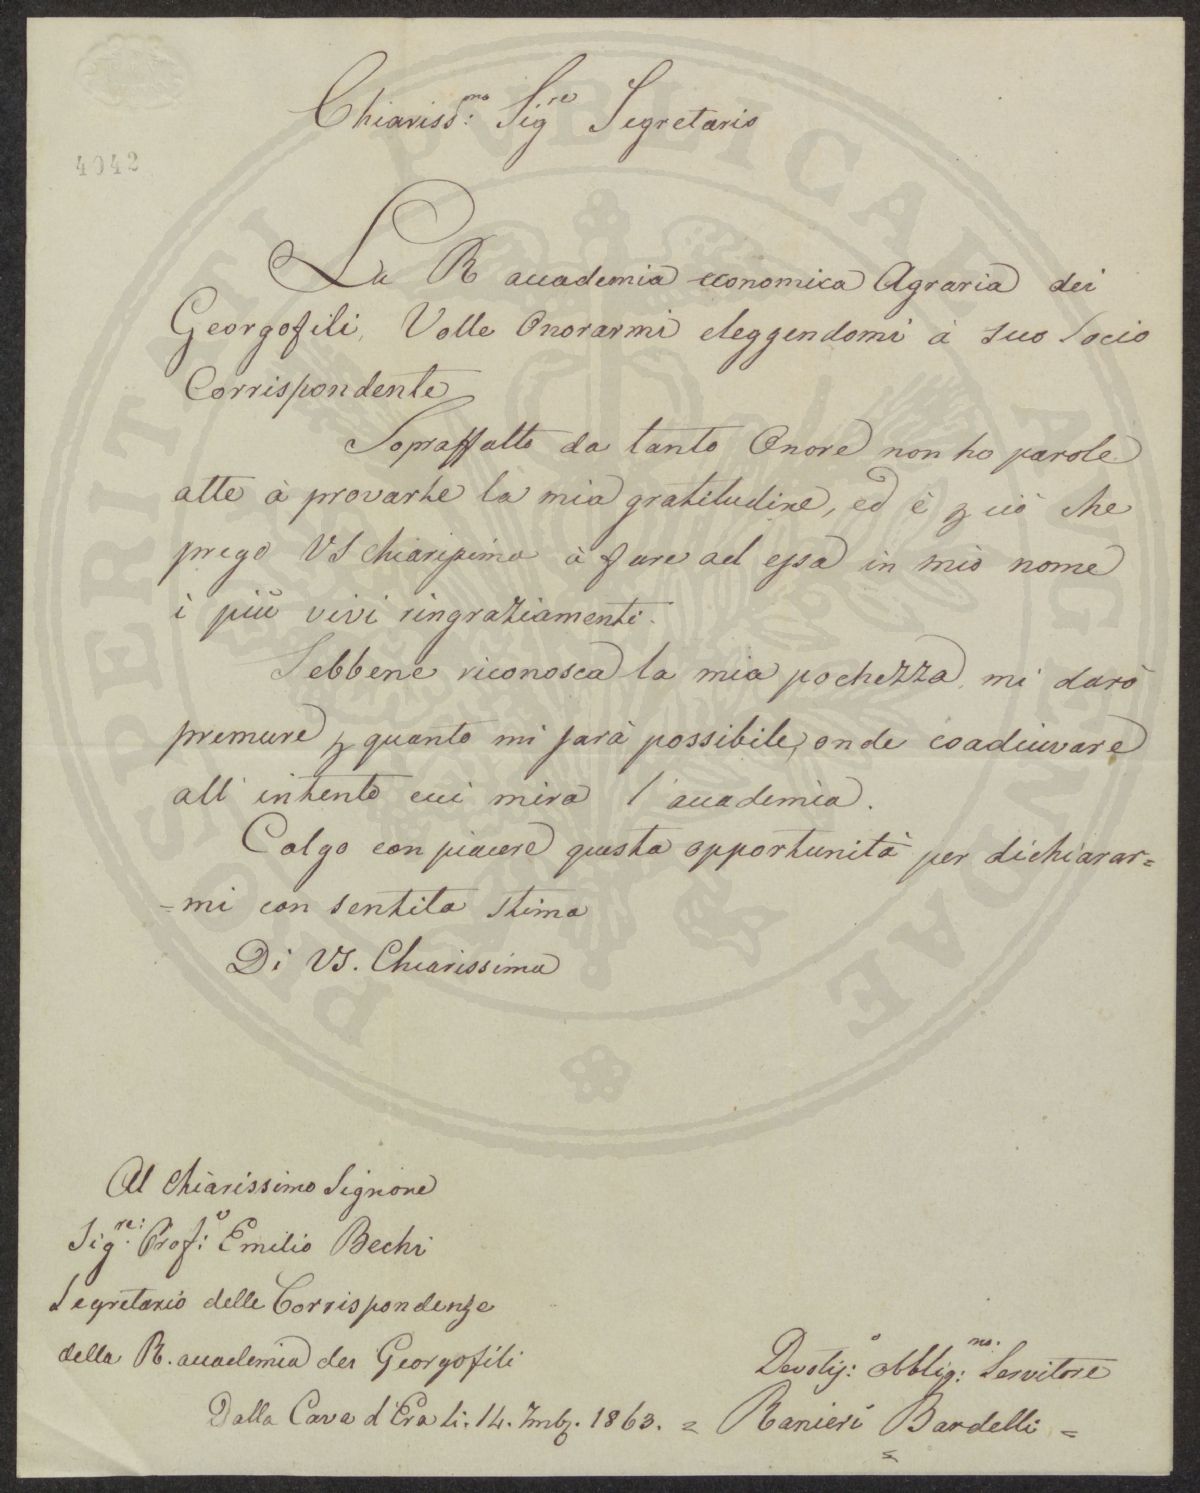 Chiariss:mo Sigre Segretario
4042
La R accademia economica Agraria dei
Georgofili, Volle Onorarmi eleggendomi à suo Socio
Corrispondente
Sopraffatto da tanto Onore non ho parole
atte à provarLe la mia gratitudine, ed è p ciò che
prego VS Chiarissima à fare ad essa in mio nome
i più vivi ringraziamenti.
Sebbene riconosca la mia pochezza, mi darò
premure p quanto mi sarà possibile, onde coadiuvare
all' intento cui mira l'accademia.
Colgo con piacere questa opportunità per dichiarar=
=mi con sentita stima
Di VS. Chiarissima
Al Chiarissimo Signore
Sigre: Prof:o Emilio Bechi
Segretario delle Corrispondenze
della R. accademia dei Georgofili
Devotiss:o obblig:mo. Servitore
Dalla Cava d'Era li. 14. 1863. = Ranieri Bardelli =
PROSPERITATI PUBLICAE AUGENDAE